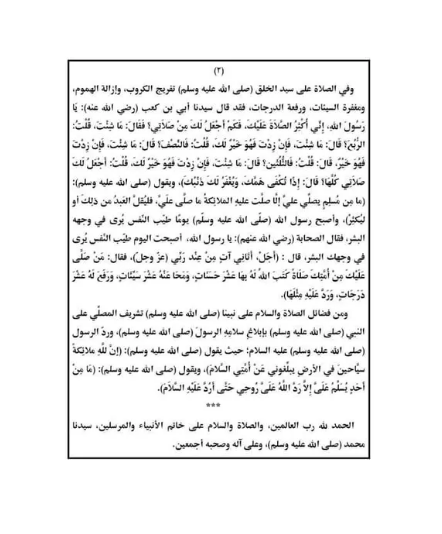 (٢)
وفي الصلاة على سيد الخلق (صلى الله عليه وسلم) تفريج الكروب، وإزالة الهموم،
ومغفرة السيئات، ورفعة الدرجات، فقد قال سيدنا أبي بن كعب (رضي الله عنه): يَا
رَسُولَ اللهِ، إِنِّي أُكْثِرُ الصَّلاةَ عَلَيْكَ، فَكَمْ أَجْعَلُ لَكَ مِنْ صَلاتِي؟ فَقَالَ: مَا شِئْتَ، قُلْتُ:
الرُّبُعَ؟ قَالَ: مَا شِئْتَ، فَإِنْ زِدْتَ فَهُوَ خَيْرٌ لَكَ، قُلْتُ: فَالنِّصْفَ؟ قَالَ: مَا شِئْتَ، فَإِنْ زِدْتَ
فَهُوَ خَيْرٌ، قَالَ: قُلْتُ: فَالثُّلُثَيْنِ؟ قَالَ: مَا شِئْتَ، فَإِنْ زِدْتَ فَهُوَ خَيْرٌ لَكَ، قُلْتُ: أَجْعَلُ لَكَ
صَلاتِي كُلَّهَا؟ قَالَ: إِذًا تُكْفَى هَمَّكَ، وَيُغْفَرُ لَكَ ذَنْبُكَ)، ويقول (صلى الله عليه وسلم):
(ما مِن مُسلِمٍ يصلِّي عليَّ إلَّا صلَّت عليهِ الملائِكةُ ما صلَّى عليَّ، فليُقلَّ العَبدُ من ذلِكَ أو
ليُكثِرْ)، وأصبح رسول الله (صلّى الله عليه وسلّم) يومًا طيّب النّفس يُرى في وجهه
البشر، فقال الصحابة (رضي الله عنهم): يا رسول الله، أصبحت اليوم طيّب النّفس يُرى
في وجهك البشر، قال : (أَجَلْ، أَتَانِي آتٍ مِنْ عِنْدِ رَبِّي (عزّ وجلّ)، فقال: مَنْ صَلَّى
عَلَيْكَ مِنْ أُمَّتِكَ صَلَاةً كَتَبَ اللهُ لَهُ بِهَا عَشْرَ حَسَنَاتٍ، وَمَحَا عَنْهُ عَشْرَ سَيِّئَاتٍ، وَرَفَعَ لَهُ عَشْرَ
دَرَجَاتٍ، وَرَدَّ عَلَيْهِ مِثْلَهَا).
ومن فضائل الصلاة والسلام على نبينا (صلى الله عليه وسلم) تشريف المصلِّي على
النبي (صلى الله عليه وسلم) بإبلاغِ سلامِهِ الرسولَ (صلى الله عليه وسلم)، وردّ الرسول
(صلى الله عليه وسلم) عليه السلام؛ حيث يقول (صلى الله عليه وسلم): (إنَّ للَّهِ ملائِكةً
سيَّاحينَ في الأرضِ يبلِّغوني عَنْ أُمَّتِي السَّلامَ)، ويقول (صلى الله عليه وسلم): (مَا مِنْ
أَحَدٍ يُسَلِّمُ عَلَيَّ إِلَّا رَدَّ اللَّهُ عَلَيَّ رُوحِي حَتَّى أَرُدَّ عَلَيْهِ السَّلَامَ).
***
الحمد لله رب العالمين، والصلاة والسلام على خاتم الأنبياء والمرسلين، سيدنا
محمد (صلى الله عليه وسلم)، وعلى آله وصحبه أجمعين.